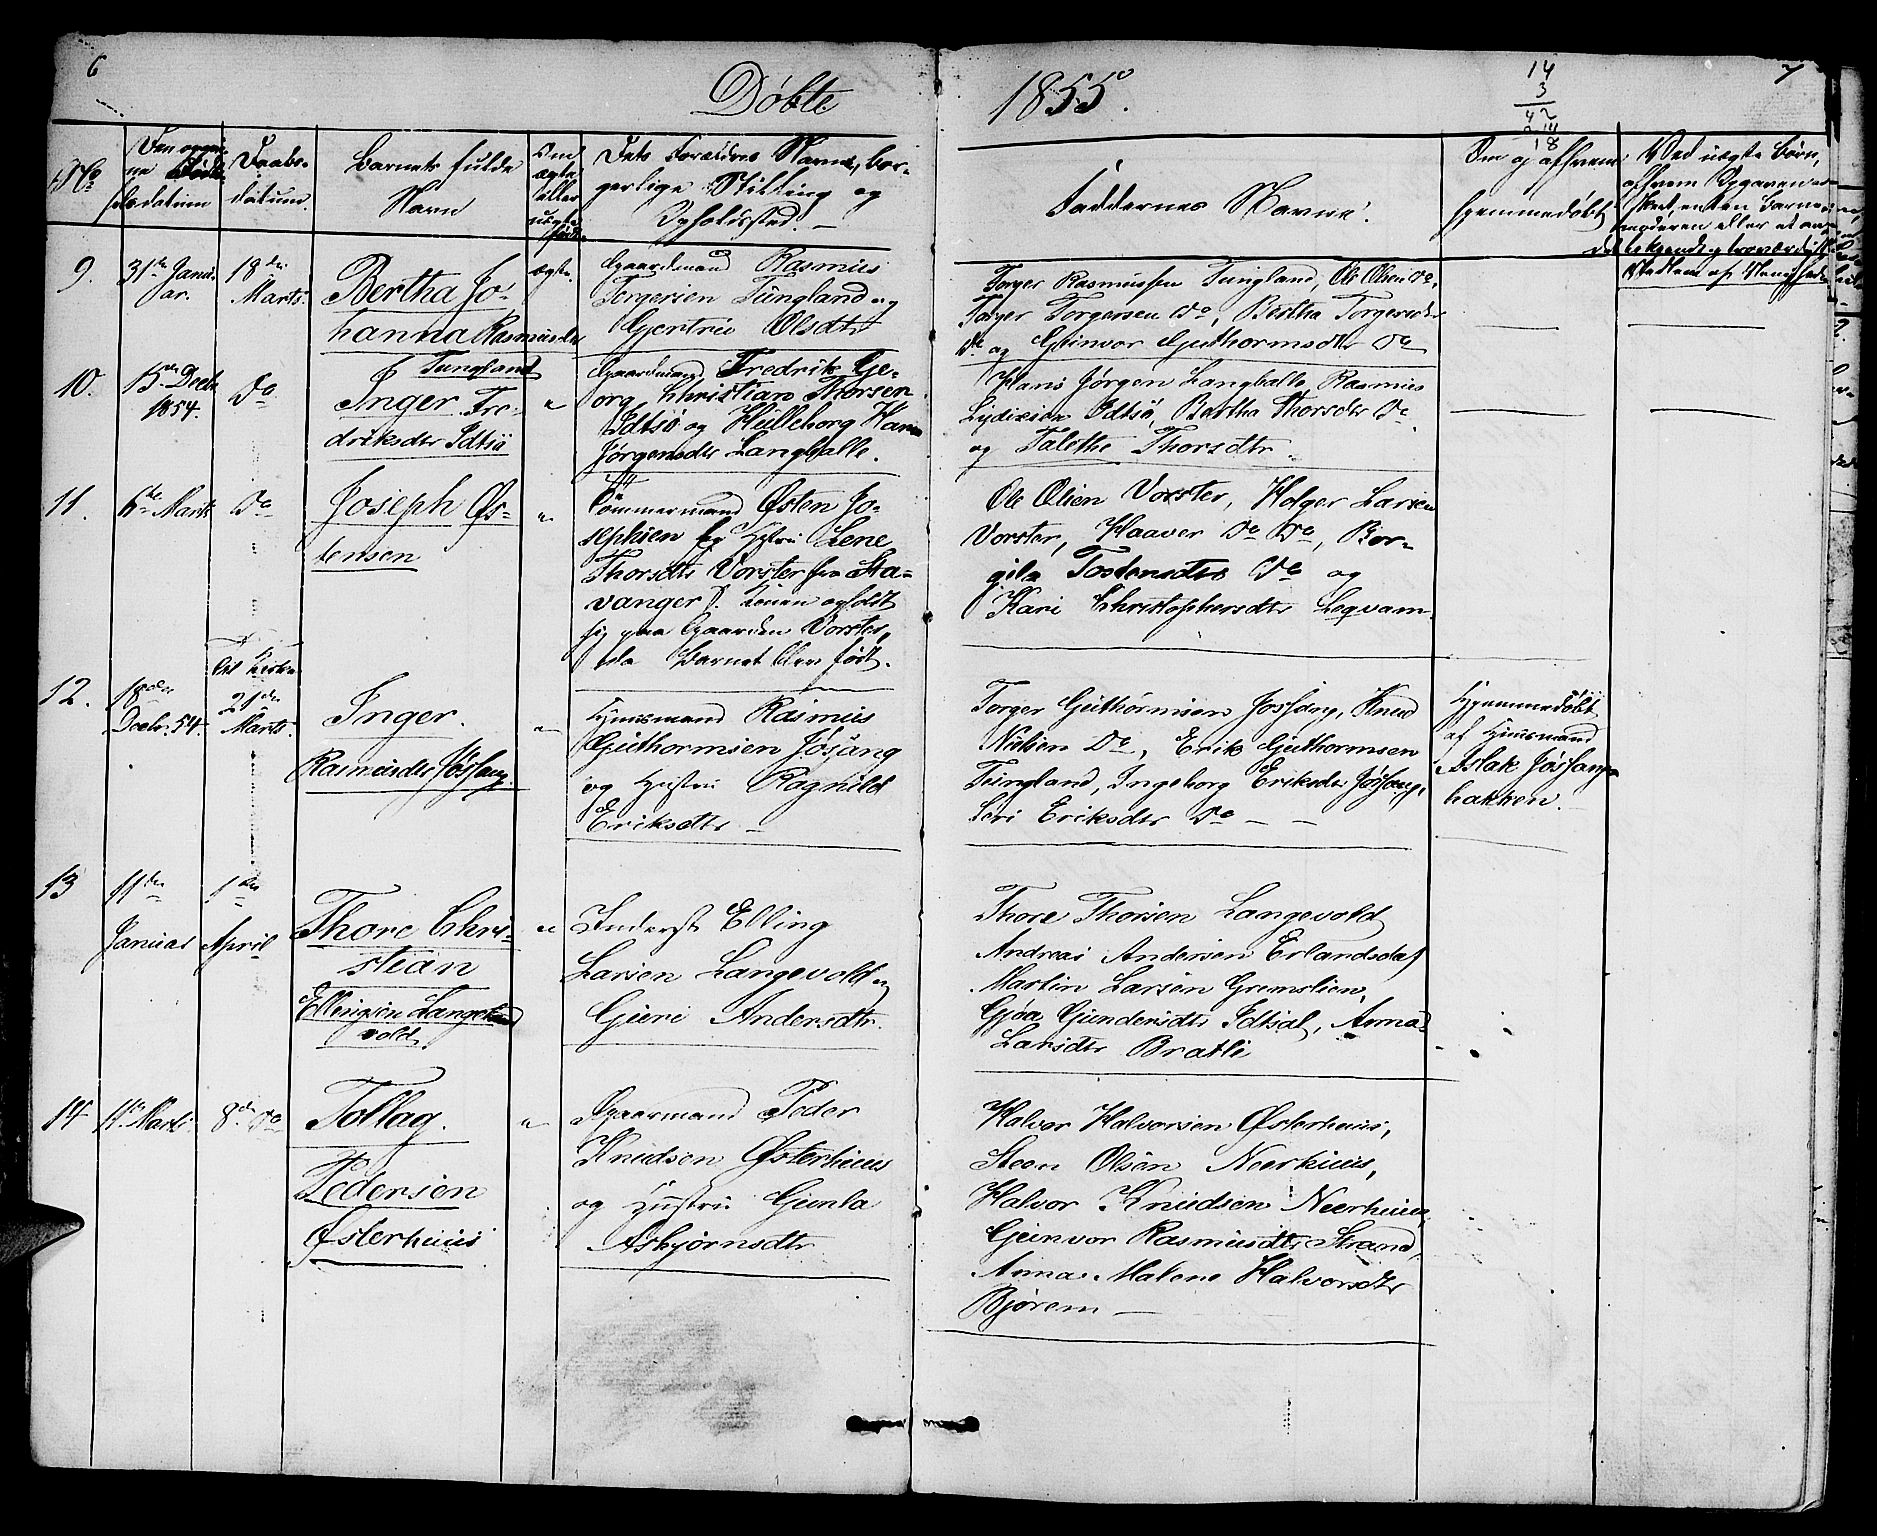 6
Døbte
1855.
14
3
42
18
7
No
Den opgivne Fødselsdatum
Daabsdatum.
Barnets fulde Navn
Om ægte eller uægte født.
Dets Forældres Navne, borgerlige Stilling og Opholdssted. –
Faddernes Navne.
Om og af hvem hjemmedøbt
Ved uægte Børn,
9.
31te Januar.
18de Marts.
Bertha Johanna Rasmusdtr Tungland
ægte.
Gaardmand Rasmus
Torgersen Tungland og
Gjertru Olsdtr
Torger Rasmussen Tungland, Ole Olsen Do,
Torger Torgersen Do, Bertha Torgersdtr
Do og Guinvor Guthormsdtr Do
10.
15de Decbr 1854.
Do
Inger Fredriksdtr Idtsø
"
Gaardmand Fredrik Georg Christian Thorsen
Idtsø og Hülleborg Hans
Jørgensdtr Langballe.
Hans Jørgen Langballe, Rasmus
Idtsö, Bertha Thorsdtr Do
og Talethe Thorsdtr.
11.
6te Marts
Do
Joseph Østensen
"
Tömmermand Østen Josephsen og Hstru Lene
Thorsdtr Vorster fra Stavanger. Konen opholdt
sig paa Gaarden Vorster,
da Barnet blev født.
Ole Olsen Vorster, Holger Larsen
Vorster, Haaver Do Do, Borgila Tostensdtr Do og
Kari Christophersdtr Leqvam.
12.
18de Decbr. 54.
Til Kirken 21de Marts.
Inger.
Rasmusdtr Jøssang.
"
Huusmand Rasmus
Guthormsen Jøsang
og Hustru Ragnild
Eriksdtr –
Torger Guthormsen Jossang, Knud
Nilsen Do, Erik Guthormsen
Tungland, Ingeborg Eriksdtr Jøssang,
Siri Eriksdtr Do – –
Hjemmedøbt
af Huusmand
Aslak Jøssang
bakken.
13
11de Januar
1de April
Thore Christian
Ellingsen Langevold
"
Inderst Elling
Larsen Langevold og
Guri Andersdtr.
Thore Thorsen Langevold
Andreas Andersen Erlandsdal
Martin Larsen Gremslien,
Gjøa Gundersdtr Idtsal, Anna
Larsdtr Bratli
14
11te Marts.
8de Do
Tollag.
Pedersen
Østerhuus
"
Gaarmand Peder
Knudsen Østerhuus
og Hustru Gunla
Asbjørnsdtr
Halvor Halvorsen Østerhuus,
Steen Olsen Neerhuus,
Halvor Knudsen Neerhuus,
Guinvor Rasmusdtr Strand,
Anna Malene Halvorsdtr
Bjørem –